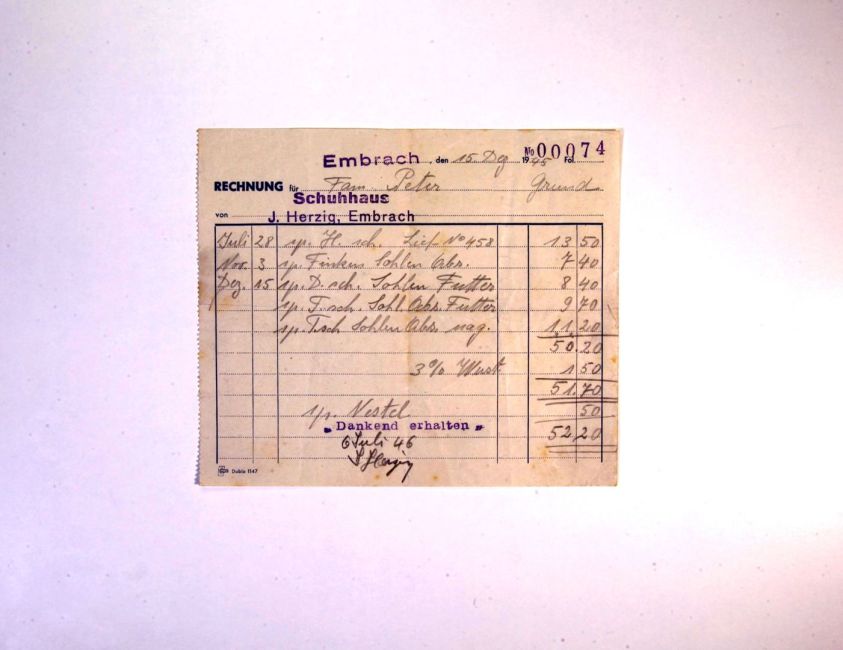 No 00074
Embrach, den 15. Dez 1945 Fol.
RECHNUNG für Fam. Peter Grund
Schuhhaus
von J. Herzig, Embrach
Juli 28 rp. H. sch. Lief No 458 13 50
Nov. 3 rp. Finken Sohlen Abs. 7 40
Dez. 15 rp. D. sch. Sohlen Futter 8 40
rp. T. sch. Sohl. Abs. Futter 9 70
rp. T.sch Sohlen Abs. nag. 11.20
50.20
3% Wust 1 50
51.70
rp. Nestel 50
Dankend erhalten
52.20
6 Juli 46
J Herzig
Dubio 1147